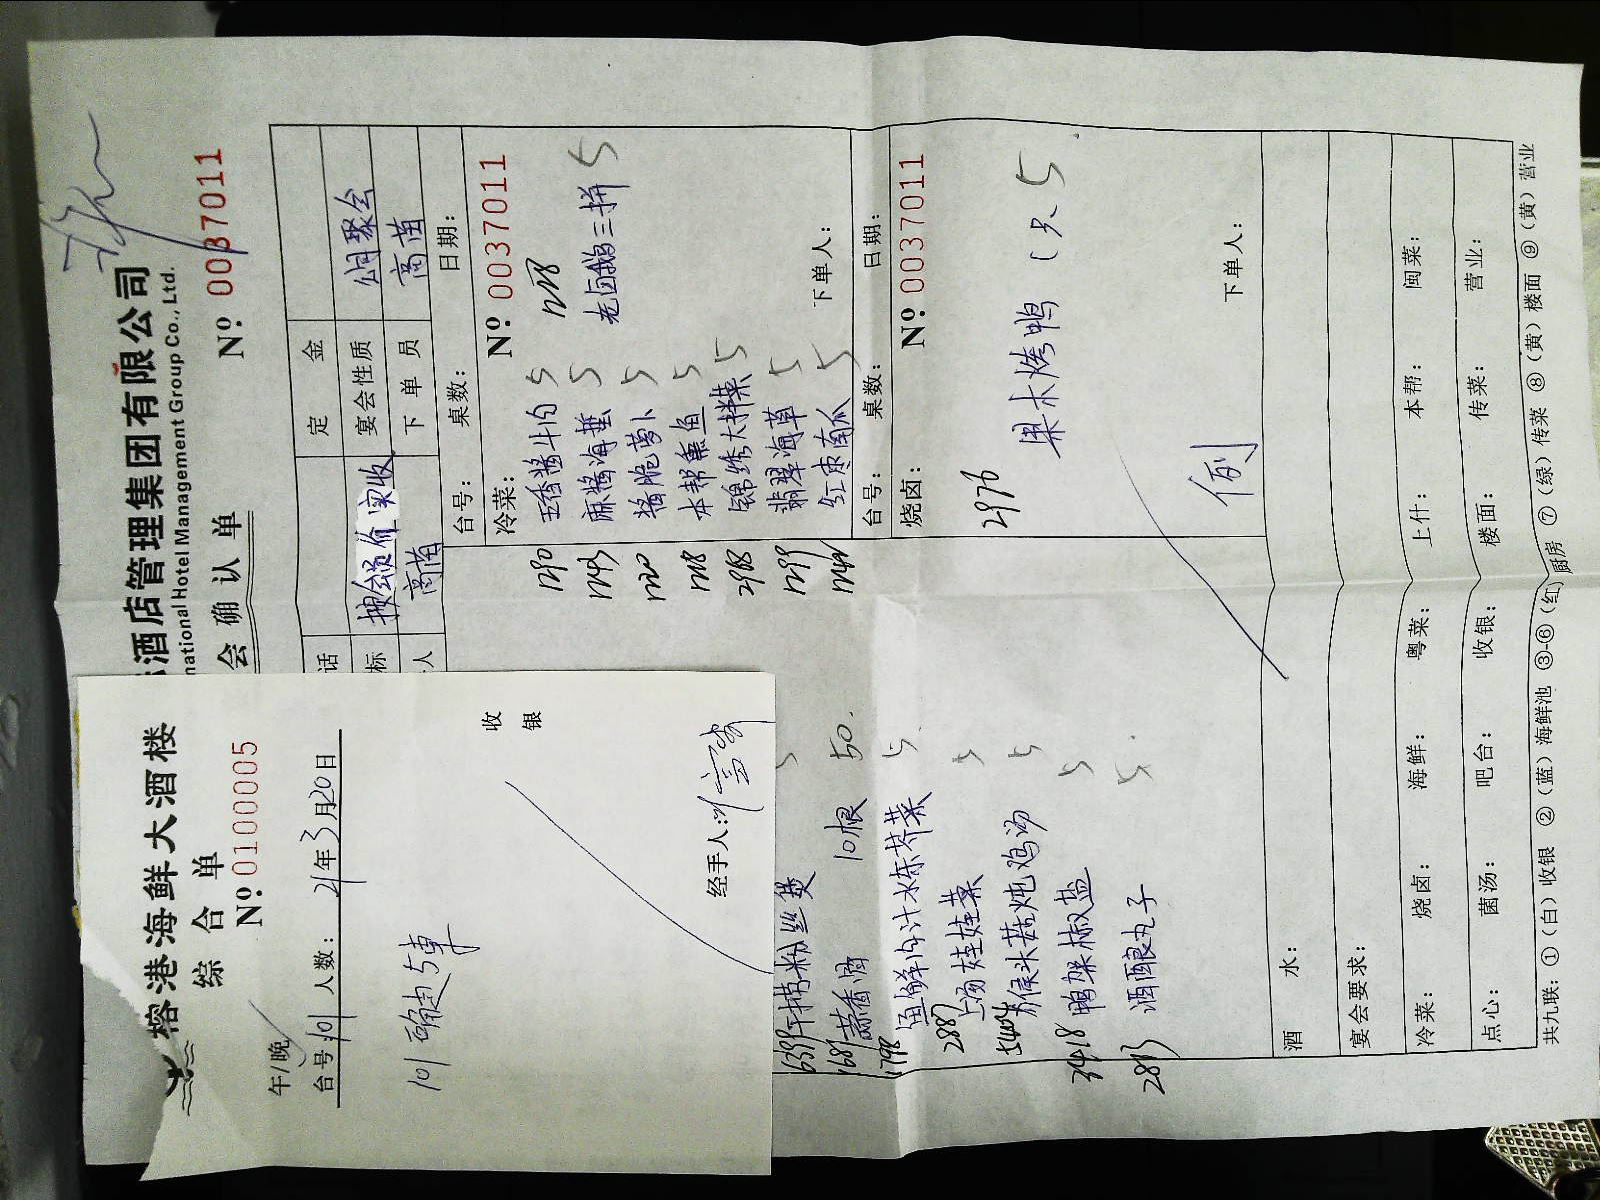 榕港海鲜大酒楼
综合单
№:0100005
午/晚
台号:101 人数: 21年3月20日
收银
经手人:
酒店管理集团有限公司
national Hotel Management Group Co., Ltd.
会确认单
№:0037011
话
定金
标 按会员价实收
宴会性质 公司聚会
人 高苗
下单员 高苗
台号: 桌数: 日期:
冷菜: №:0037011
五香酱牛肉 5
麻酱海蜇 5
酱脆萝卜 5
本帮熏鱼 5
锦绣大拌菜 5
翡翠海草 5
红枣南瓜 5
老卤鹅三拼 5
下单人:
台号: 桌数: 日期:
烧卤: №:0037011
2976 果木烤鸭 1只 5
例
下单人:
干捞粉丝煲 5
蒜香骨 10根 50.
鱼鲜肉汁水东芥菜 5
2887 上汤娃娃菜 5
猴头菇炖鸡汤 5
3418 鸭架椒盐 5
2813 酒酿丸子 5
酒水:
宴会要求:
冷菜: 烧卤: 海鲜: 粤菜: 上什: 本帮: 闽菜:
点心: 菌汤: 吧台: 收银: 楼面: 传菜: 营业:
共九联:①(白)收银 ②(蓝)海鲜池 ③-⑥(红)厨房 ⑦(绿)传菜 ⑧(黄)楼面 ⑨(黄)营业